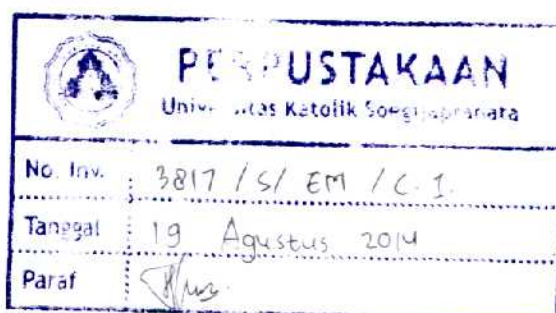 PERPUSTAKAAN
Universitas Katolik Soegijapranata
No. Inv. : 3817 / S / EM / C.1.
Tanggal : 19 Agustus 2014
Paraf :